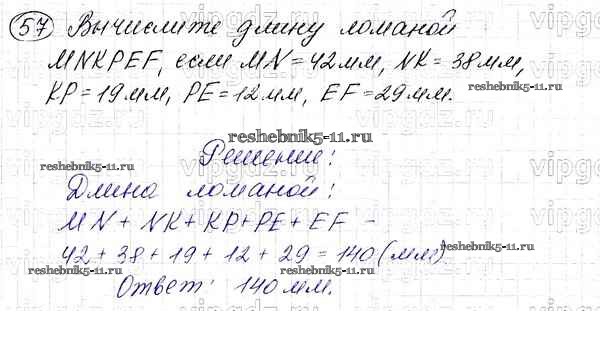 57 Вычислите длину ломаной
MNKPEF, если MN = 42мм, NK = 38мм,
KP = 19мм, PE = 12мм, EF = 29мм.
Решение:
Длина ломаной:
MN + NK + KP + PE + EF =
42 + 38 + 19 + 12 + 29 = 140 (мм)
Ответ: 140мм.
reshebnik5-11.ru
reshebnik5-11.ru
reshebnik5-11.ru
reshebnik5-11.ru
reshebnik5-11.ru
reshebnik5-11.ru
reshebnik5-11.ru
vipgdz.ru
vipgdz.ru
vipgdz.ru
vipgdz.ru